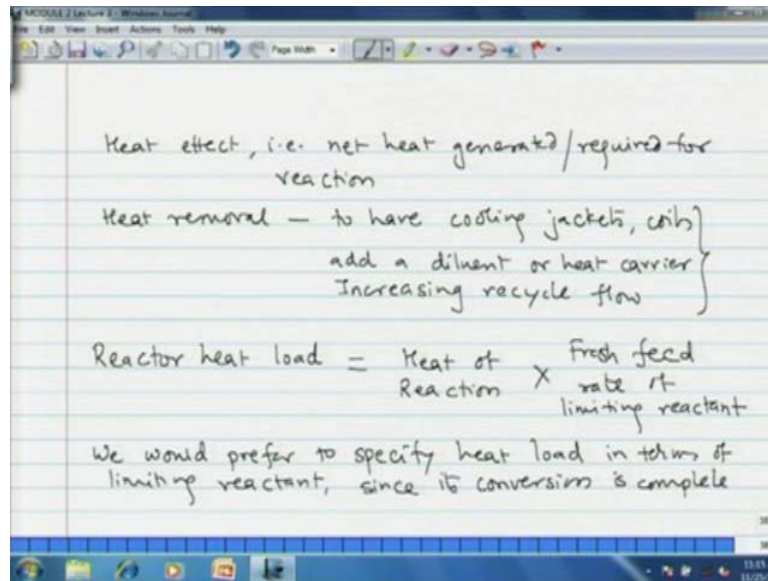 MODULE 2 Lecture 3 - Windows Journal
File Edit View Insert Actions Tools Help
Page Width
Heat effect, i.e. net heat generated/required for
reaction
Heat removal — to have cooling jackets, coils
add a diluent or heat carrier
Increasing recycle flow
Reactor heat load = Heat of Reaction X Fresh feed rate of limiting reactant
We would prefer to specify heat load in terms of
limiting reactant, since its conversion is complete
11:15